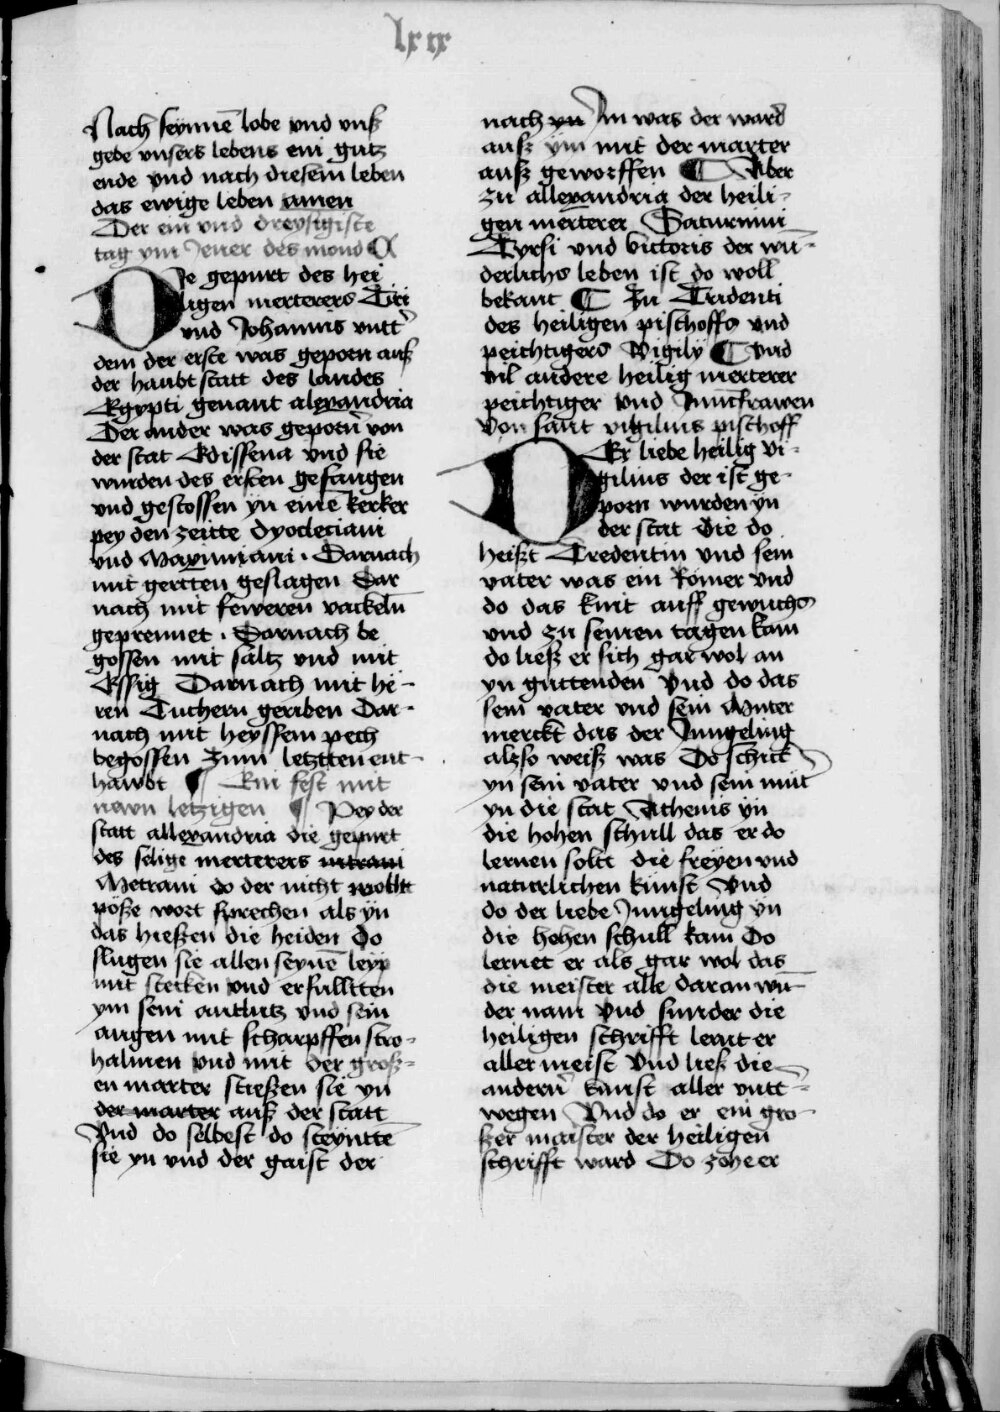 lxx
Nach seynnē lobe vnd vnß
gebe vnsers lebens ein gutz
ende vnd nach diesem leben
das ewige leben amen
Der ein vnd dreysigiste
tag ym Jener des mond
Die gepurt des hei
ligen merterers Tiri
vnd Johannis vntt
dem der erste was geporn auß
der haubt statt des landes
Egypti genant alexandria
Der ander was geporn von
der stat Edissena vnd sie
wurden des ersten gefangen
vnd gestossen yn einē kerker
pey den zeitte dyocleciani
vnd Maximiani . Darnach
mit gertten geslagen Dar
nach mit feweren vackeln
geprennet . Darnach be
gossen mit saltz vnd mit
Essig Darnach mit he-
ren Tuchern geriben Dar-
nach mit heyssem pech
begossen zum letztten ent-
hawbt ¶ Ein fest mit
newn letzigen ¶ Pey der
statt allexandria die gepurt
des selige merterers metrani
Metrani do der nicht wolltt
pöße wort sprechen als yn
das hießen die heiden Do
slugen sie allen seynē leyp
mit stecken vnd erfulltten
ym sein antlutz vnd sein
augen mit scharpffen stro-
halmen vnd mit der groß-
en marter stießen sie yn
der marter auß der statt
Vnd do selbest do steyntē
sie yn vnd der gaist der
nach yn Jn was der ward
auß ym mit der marter
auß geworffen ¶ Aber
zu allexandria der heili-
gen merterer Saturnini
Tyrsi vnd victoris der wu-
derlichs leben ist do woll
bekant ¶ In Tridenti
des heiligen pischoffs vnd
peichtigers Vigily ¶ Vnd
vil andere heilig merterer
peichtiger vnd Junckfrawen
Von sant vigilius pischoff
DEr liebe heilig Vi-
gilius der ist ge-
porn wurden yn
der stat die do
heißt Tredentin vnd sein
vater was ein Römer vnd
do das kint auff gewuchs
vnd zu seinen tagen kam
do ließ er sich gar wol an
yn guttenden Vnd do das
sein vater vnd sein Muter
merckt das der Jungeling
alzso weiß was Do schick
yn sein vater vnd sein mut
yn die stat Athenis yn
die hohen schull das er do
lernen soltt die freyen vnd
naturlichen kunst Vnd
do der liebe Jungeling yn
die hohen schull kam Do
lernet er als gar wol das
die meister alle daran wū-
der nam Vnd sunder die
heiligen schrifft lernt er
aller meist Vnd ließ die
andern kunst aller vntt-
wegen Vnd do er ein gro-
ßer maister der heiligen
schrifft ward Do zohe er